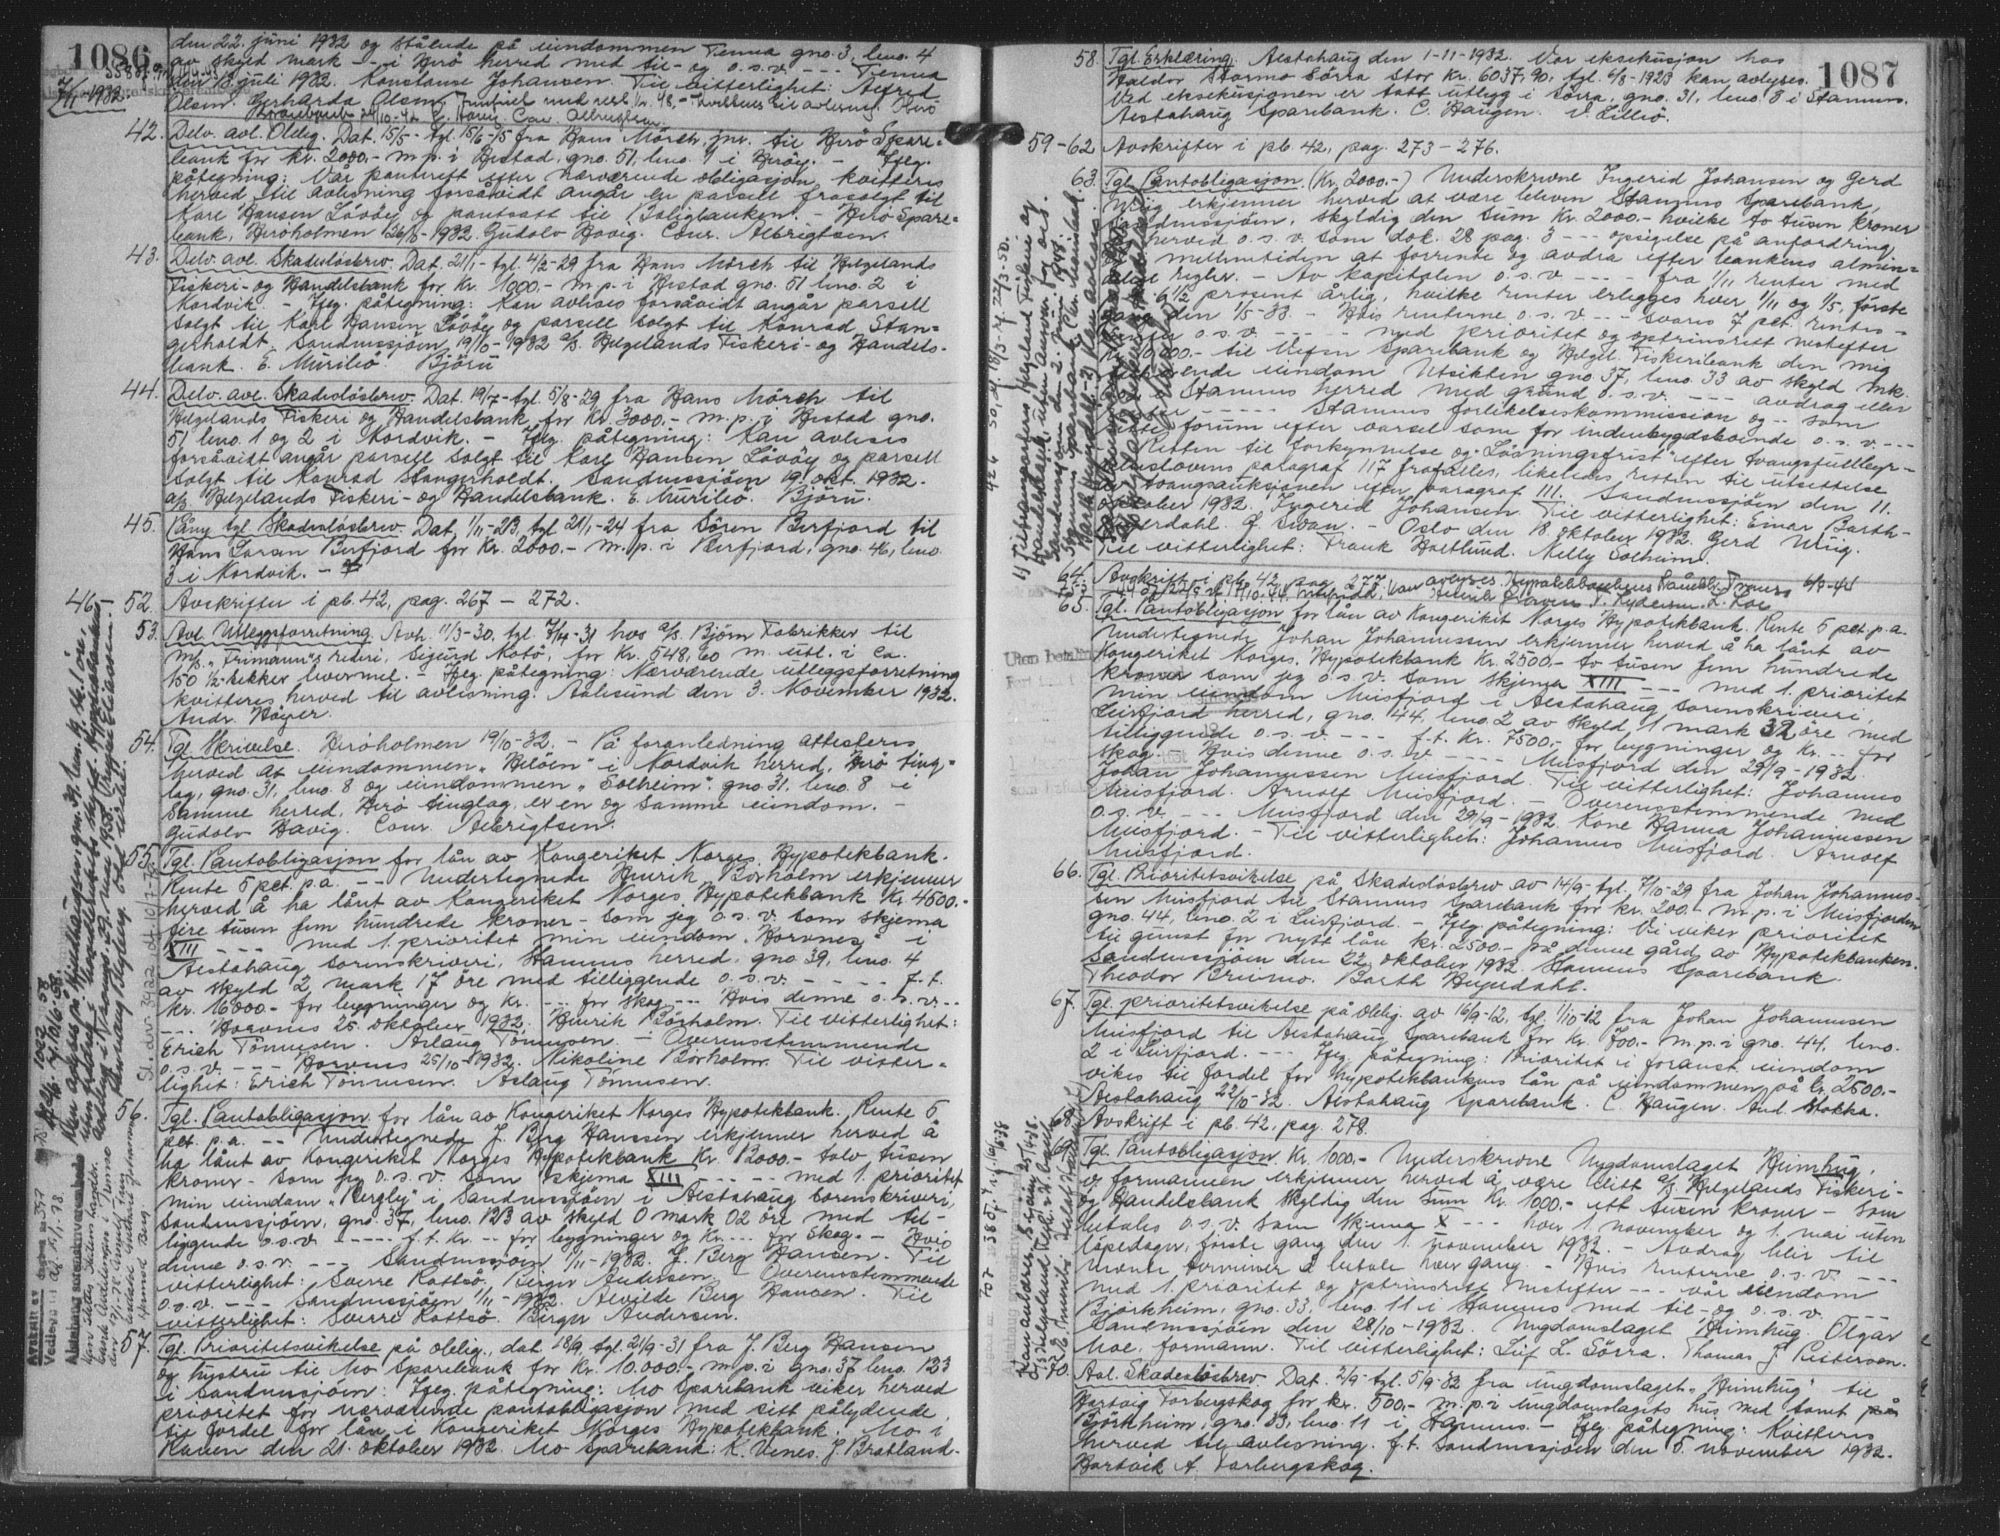 1086
7/11-1932.
den 22. juni 1932 og stående på eiendommen Tenna gno. 3, bno. 4
av skyld mark - - i Herö herred med til- og o.s.v. - - - Tenna
den 3 juli 1932. Konstanse Johansen. Til vitterlighet: Alfred
Olsen. Gerharda Olsen.
42. Delv. avl. Oblig. Dat. 15/5 - tgl. 15/6-15 fra Hans Mörch jnr. til Herö Spare=
bank for kr. 2000.- m.p. i Hestad, gno. 51, bno. 1 i Heröy. - Iflg.
påtegning: Vår panterett efter nærværende obligasjon kvitteres
herved til avlesning forsåvidt angår en parsell frasolgt til
Karl Hansen Lövöy og pantsatt til Boligbanken. - Herö Spare=
bank, Heröholmen 26/8-1932. Gudolv Havig. Conr. Albrigtsen.
43. Delv. avl. Skadeslösbrev. Dat. 21/1 - tgl. 4/2-29 fra Hans Mörch til Helgelands
Fiskeri- og Handelsbank for kr. 1000.- m.p. i Hestad gno. 51 bno. 2 i
Nordvik. - Iflg. påtegning: Kan avleses forsåvidt angår parsell
solgt til Karl Hansen Lövöy og parsell solgt til Konrad Stan=
gerholdt. Sandnessjöen, 19/10-1932 a/s Helgelands Fiskeri- og Handels-
bank. E. Mürileö. Björu
44. Delv. avl. Skadeslösbrev. Dat. 19/7 - tgl. 5/8-29 fra Hans Mörch til
Helgelands Fiskeri og Handelsbank for kr. 3000.- m.p. i Hestad gno.
51 bno. 1 og 2 i Nordvik. - Iflg. påtegning: Kan avleses
forsåvidt angår parsell solgt til Karl Hansen Lövöy og parsell
solgt til Konrad Stangerholdt. Sandnessjöen 19. okt. 1932.
a/s Helgelands Fiskeri- og Handelsbank. E. Mürileö. Björu.
45. På ny tgl. Skadeslösbrev. Dat. 1/11-23, tgl. 21/1-24 fra Sören Berfjord til
Hans Larsen Berfjord for kr. 2000.- m.p. i Berfjord, gno. 46, bno.
3 i Nordvik. -
46- 52. Avskrifter i pb. 42, pag. 267 - 272.
53. Avl. Utleggsforretning. Avh. 11/3-30, tgl. 7/4-31 hos a/s Björn Fabrikker til
m/s "Frimann"s rederi, Sigurd Notö, for kr. 548,60 m. utl. i ca.
150 1/2-sekker levermel. - Iflg. påtegning: Nærværende utleggsforretning
kvitteres herved til avlesning. Aalesund den 3. November 1932.
Andr. Höyer.
54. Tgl. Skrivelse. Heröholmen 19/10-32. - På foranledning attesteres
herved at eiendommen "Heiöen" i Nordvik herred, Herö ting=
lag, gno. 31, bno. 8 og eiendommen "Solheim" gno 31, bno 8 i
samme herred, Herö tinglag, er en og samme eiendom. -
Gudolv Havig. Conr. Albrigtsen.
55. Tgl. Pantobligasjon for lån av Kongeriket Norges Hypotekbank.
Rente 5 pct. p.a. - - Undertegnede Henrik Börholm erkjenner
herved å ha lånt av Kongeriket Norges Hypotekbank kr. 4500.-
fire tusen fem hundrede kroner - som jeg o.s.v. som skjema
XIII - - - med 1. prioritet min eiendom "Horvnes" i
Alstahaug sorenskriveri, Stamnes herred, gno 39, bno. 4
av skyld 2 mark 17 öre med tilliggende o.s.v. - - - - f.t.
kr. 16000.- for bygninger og kr. - - - for skog. - - - Hvis denne o.s.v. - -
- - - Horvnes 25. oktober 1932. Henrik Börholm. Til vitterlighet:
Erich Tönnesen. Aslaug Tönnesen. - Overensstemmende
o.s.v. - - - Horvnes 25/10-1932. Nikoline Börholm. Til vitter=
lighet: Erich Tönnesen. Aslaug Tönnesen.
56. Tgl. Pantobligasjon for lån av Kongeriket Norges Hypotekbank. Rente 5
pct. p.a. - - Undertegnede J. Berg Hanssen erkjenner herved å
ha lånt av Kongeriket Norges Hypotekbank kr. 12000.- tolv tusen
kroner - som jeg o.s.v. som skjema XIII - - - - - med 1. prioritet
min eiendom "Bergly" i Sandnessjöen i Alstahaug sorenskriveri,
Sandnessjöen, gno. 37, bno. 123 av skyld 0 mark 02 öre med til-
liggende o.s.v. - - - - - f.t. kr. - - for bygninger og kr. - - - for skog. - Hvis
denne o.s.v. - - - Sandnessjöen 1/11-1932. J. Berg Hansen. Til
vitterlighet: Sverre Kottsö. Birger Andersen. - Overensstemmende
o.s.v. - - - Sandnessjöen 1/11-1932. Alvilde Berg Hansen. Til
vitterlighet: Sverre Kottsö. Birger Andersen.
57. Tgl. Prioritetsvikelse på oblig. dat. 18/9, tgl. 21/9-31 fra J. Berg Hansen
og hustru til Mo Sparebank for kr. 10.000.- m.p. i gno. 37 bno. 123
i Sandnessjöen: Iflg. påtegning: Mo Sparebank viker herved
prioritet for nærværende pantobligasjon med sitt pålydende
til fordel for lån i Kongeriket Norges Hypotekbank. Mo i
Ranen den 21. oktober 1932. Mo Sparebank: K. Venes. J. Bratland.
1087
58. Tgl. Erklæring. Alstahaug den 1-11-1932. Vår eksekusjon hos
Haldor Stormo Sörra stor kr. 6037,90, tgl. 6/8-1923 kan avlyses.
Ved eksekusjonen er tatt utlegg i Sörra, gno. 31, bno. 8 i Stamnes.
Alstahaug Sparebank. C. Haugen. O. Lilleö.
59-62 Avskrifter i pb. 42, pag. 273 - 276.
63. Tgl. Pantobligasjon (kr. 2000.-) Underskrevne Ingerid Johansen og Gerd
Wiig erkjenner herved at være bleven Stamnes Sparebank,
Sandnessjöen, skyldig den sum kr. 2000.- hvilke to tusen kroner
herved o.s.v. som dok. 28 pag. 3 - - - opsigelse på anfordring
og mellemtiden at forrente og avdra efter bankens almin=
delige regler. - Av kapitalen o.s.v. - - - fra 1/11 renter med
6 1/2 prosent årlig, hvilke renter erlegges hver 1/11 og 1/5, förste
gang den 1/5-33. - Hvis renterne o.s.v. - - - svares 7 pct. rentes-
renter o.s.v. - - - - - med prioritet og optrinsrett nestefter
kr. 10,000.- til Vefsn Sparebank og Helgel. Fiskeribank den mig
tilhörende eiendom Utsikten gno. 37, bno. 33 av skyld mk.
- - i Stamnes herred med grund o.s.v. - - - avdrag eller
- - - - - Stamnes forlikelseskommission og - - som
rette forum efter varsel som for indenbygdsboende o.s.v. - - -
Retten til forkynnelse og "Lösningsfrist" efter tvangsfullbyr-
delseslovens paragraf 117 frafalles, likeledes retten til utsettelse
av tvangsauksjonen efter paragraf 111. Sandnessjöen den 11.
oktober 1932. Ingerid Johansen. Til vitterlighet: Einar Barth-
Heyerdahl. G. Swan. - Oslo den 18 oktober 1932. Gerd Wiig.
Til vitterlighet: Frank Hoetlund. Nelly Solheim.
64. Avskrift i pb. 42, pag. 277.
65. Tgl. Pantobligasjon for lån av Kongeriket Norges Hypotekbank. Rente 5 pct. p.a.
Undertegnede Johan Johannessen erkjenner herved å ha lånt av
Kongeriket Norges Hypotekbank kr. 2500.- to tusen fem hundrede
kroner som jeg o.s.v. som skjema XIII - - - med 1. prioritet
min eiendom Meisfjord i Alstahaug sorenskriveri,
Leirfjord herred, gno. 44, bno. 2 av skyld 1 mark 32 öre med
tilliggende o.s.v. - - - f.t. kr. 7500.- for bygninger og kr. - - for
skog. - Hvis denne o.s.v. - - - Meisfjord den 29/9-1932.
Johan Johannessen Meisfjord. Til vitterlighet: Johannes
Meisfjord. Arnolf Meisfjord. - Overensstemmende med
o.s.v. - - - Meisfjord den 29/9-1932. Kone Hanna Johannessen
Meisfjord. - Til vitterlighet: Johannes Meisfjord. Arnolf
Meisfjord.
66. Tgl. Prioritetsvikelse på Skadeslösbrev av 14/9 - tgl. 7/10-29 fra Johan Johannes-
sen Meisfjord til Stamnes Sparebank for kr. 200.- m.p. i Meisfjorden
gno. 44, bno. 2 i Leirfjord. - Iflg. påtegning: Vi viker prioritet
til gunst for nytt lån kr. 2500.- på denne gård av Hypotekbanken.
Sandnessjöen den 22. oktober 1932. Stamnes Sparebank
Theodor Bruimo. Barth Heyerdahl.
67. Tgl. prioritetsvikelse på oblig. av 16/9-12, tgl. 1/10-12 fra Johan Johannesen
Meisfjord til Alstahaug Sparebank for kr. 700.- m.p. i gno. 44, bno.
2 i Leirfjord. - - - Iflg. påtegning: Prioritet i foranst. eiendom
vikes til fordel for Hypotekbankens lån på eiendommen på kr. 2500.-
Alstahaug 22/10-32. Alstahaug Sparebank. C. Haugen. And. Stokka.
68. Avskrift i pb. 42, pag. 278.
69. Tgl. Pantobligasjon kr. 1000.- Underskrevne Ungdomslaget Heimhug,
v. formannen erkjenner herved å være blitt a/s Helgelands Fiskeri-
og Handelsbank skyldig den sum kr. 1000.- ett tusen kroner - som
betales o.s.v. som skjema X - - - hver 1 november og 1. mai uten
löpedager, förste gang den 1. november 1932. - Avdrag blir til
nevnte terminer å betale hver gang. - Hvis renterne o.s.v. - - -
med 1. prioritet og optrinsrett nestefter - - - vår eiendom
Björkheim, gno. 33, bno. 11 i Stamnes med til- og o.s.v. - - -
Sandnessjöen den 28/10-1932. Ungdomslaget Heimhug. Olgar
Moe, formann. Til vitterlighet: Leif L. Sörra. Thomas J. Pettersen.
70. Avl. Skadeslösbrev. Dat. 2/9 - tgl. 5/9-32 fra Ungdomslaget "Heimhug" til
Hartvig Torbergskog for kr. 500.- m.p. i Ungdomslagets hus med tomt på
Björkheim, gno. 33, bno. 11 i Stamnes. - Iflg. påtegning: Kvitteres
herved til avlesning. f.t. Sandnessjöen den 5. november 1932.
Hartvik A. Torbergskog.